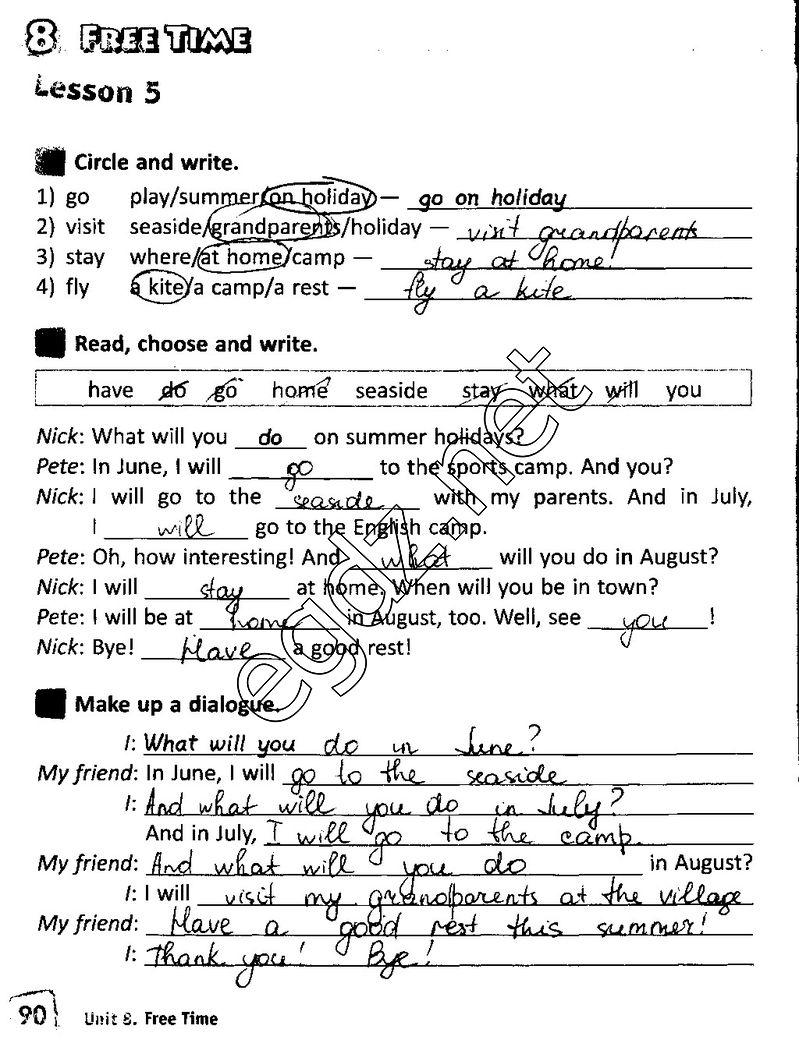 8 FREE TIME
Lesson 5
Circle and write.
1) go play/summer/on holiday — go on holiday
2) visit seaside/grandparents/holiday — visit grandparents
3) stay where/at home/camp — stay at home!
4) fly a kite/a camp/a rest — fly a kite
Read, choose and write.
have do go home seaside stay what will you
Nick: What will you do on summer holidays?
Pete: In June, I will go to the sports camp. And you?
Nick: I will go to the seaside with my parents. And in July,
I will go to the English camp.
Pete: Oh, how interesting! And what will you do in August?
Nick: I will stay at home. When will you be in town?
Pete: I will be at home in August, too. Well, see you!
Nick: Bye! Have a good rest!
egdz.net
Make up a dialogue.
I: What will you do in June?
My friend: In June, I will go to the seaside
I: And what will you do in July?
And in July, I will go to the camp.
My friend: And what will you do in August?
I: I will visit my grandparents at the village
My friend: Have a good rest this summer!
I: Thank you! Bye!
90 Unit 8. Free Time